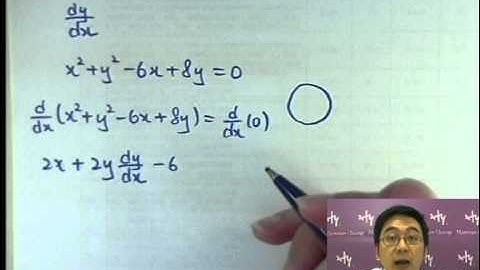 dy/dx
x² + y² - 6x + 8y = 0
d/dx (x² + y² - 6x + 8y) = d/dx (0)
2x + 2y dy/dx - 6